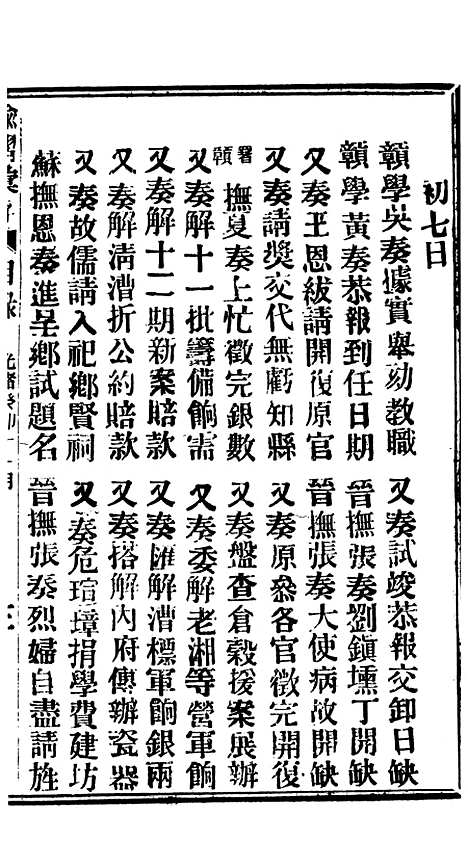 初七日
贑學吳奏據實舉劾教職
又奏試竣恭報交卸日缺
贑學黃奏恭報到任日期
晉撫張奏劉鎭壎丁開缺
又奏王恩紱請開復原官
晉撫張奏大使病故開缺
又奏請奬交代無虧知縣
又奏原叅各官徵完開復
署贑撫夏奏上忙徵完銀數
又奏盤查倉穀援案展辦
又奏解十一批籌備餉需
又奏委解老湘等營軍餉
又奏解十二期新案賠款
又奏匯解漕標軍餉銀兩
又奏解淸漕折公約賠款
又奏搭解內府傳辦瓷器
又奏故儒請入祀鄉賢祠
又奏危瑄璋捐學費建坊
蘇撫恩奏進呈鄉試題名
晉撫張奏烈婦自盡請旌
諭摺彙存 目錄 光緖癸卯十二月